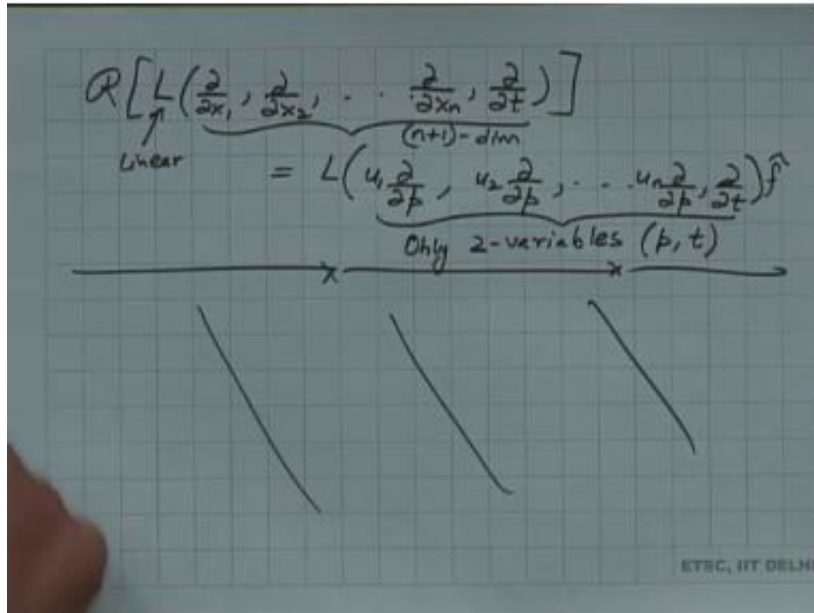 R[L(∂/∂x₁, ∂/∂x₂, . . ∂/∂xn, ∂/∂t)]
(n+1)-dim
Linear
= L(u₁ ∂/∂p, u₂ ∂/∂p, . . . un ∂/∂p, ∂/∂t) f̂
Only 2-variables (p, t)
ETSC, IIT DELHI